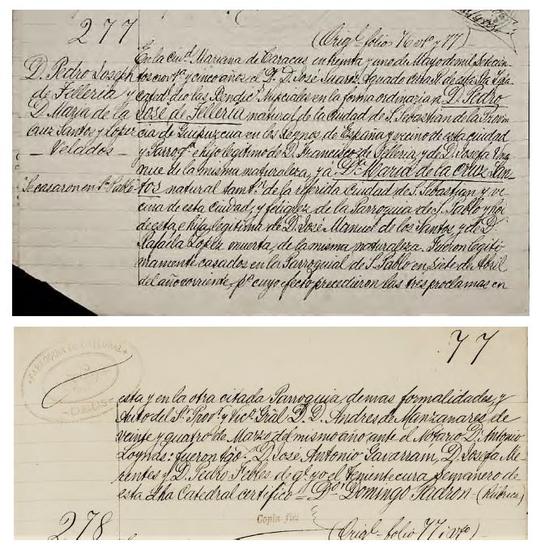 277
(Origl. folios 76 vto y 77)
D. Pedro Joseph
de Felleria y
D. Maria de la
Cruz Santos y Lopez
— Velados —
Se casaron en Sn. Pablo
En la Ciud. Mariana de Caracas en treinta y uno de Mayo de mil setecien
tos y cinco años el Dr. D. José Suarez
cated. dio las Bendics. Nupciales en la forma ordinaria a D. Pedro
José de Felleria natural de la Ciudad de S. Sebastian de la Provin
cia de Guipuzcua en los Reynos de España y vecino de esta ciudad
y Parroqa. e hijo legitimo de D. Francisco de Felleria, y de D. Josefa
que de la misma naturaleza, y a Da. Maria de la Cruz San
tos natural tambn. de la referida Ciudad de S. Sebastian y ve
cina de esta ciudad, y feligrez de la Parroquia de S. Pablo y hoi
de esta, e hija legitima de D. José Manuel de los Santos y de Da.
Rafaela Lopez muerta, de la misma naturaleza. Fueron legiti
mamente casados en la Parroquial de S. Pablo en siete de Abril
del año corriente pa. cuyo efecto precedieron las tres proclamas en
77
PARROQUIA DE CATEDRAL
CARACAS
esta y en la otra citada Parroquia, demas formalidades, y
del Sr. Provr. y Vico. Gral D. D. Andres de Manzanares de
veinte y quatro de Marzo del mismo año ante el Notario D. Antonio
Loynas: fueron tgos. D. José Antonio Gavarram, D. Josefa Me
rentes y D. Pedro Febres de qe. yo el Teniente cura semanero de
esta Sta Catedral certifico = Dr. Domingo Padron = (Rubrica)
Copia fiel
278
(Origl. folio 77 i vto)